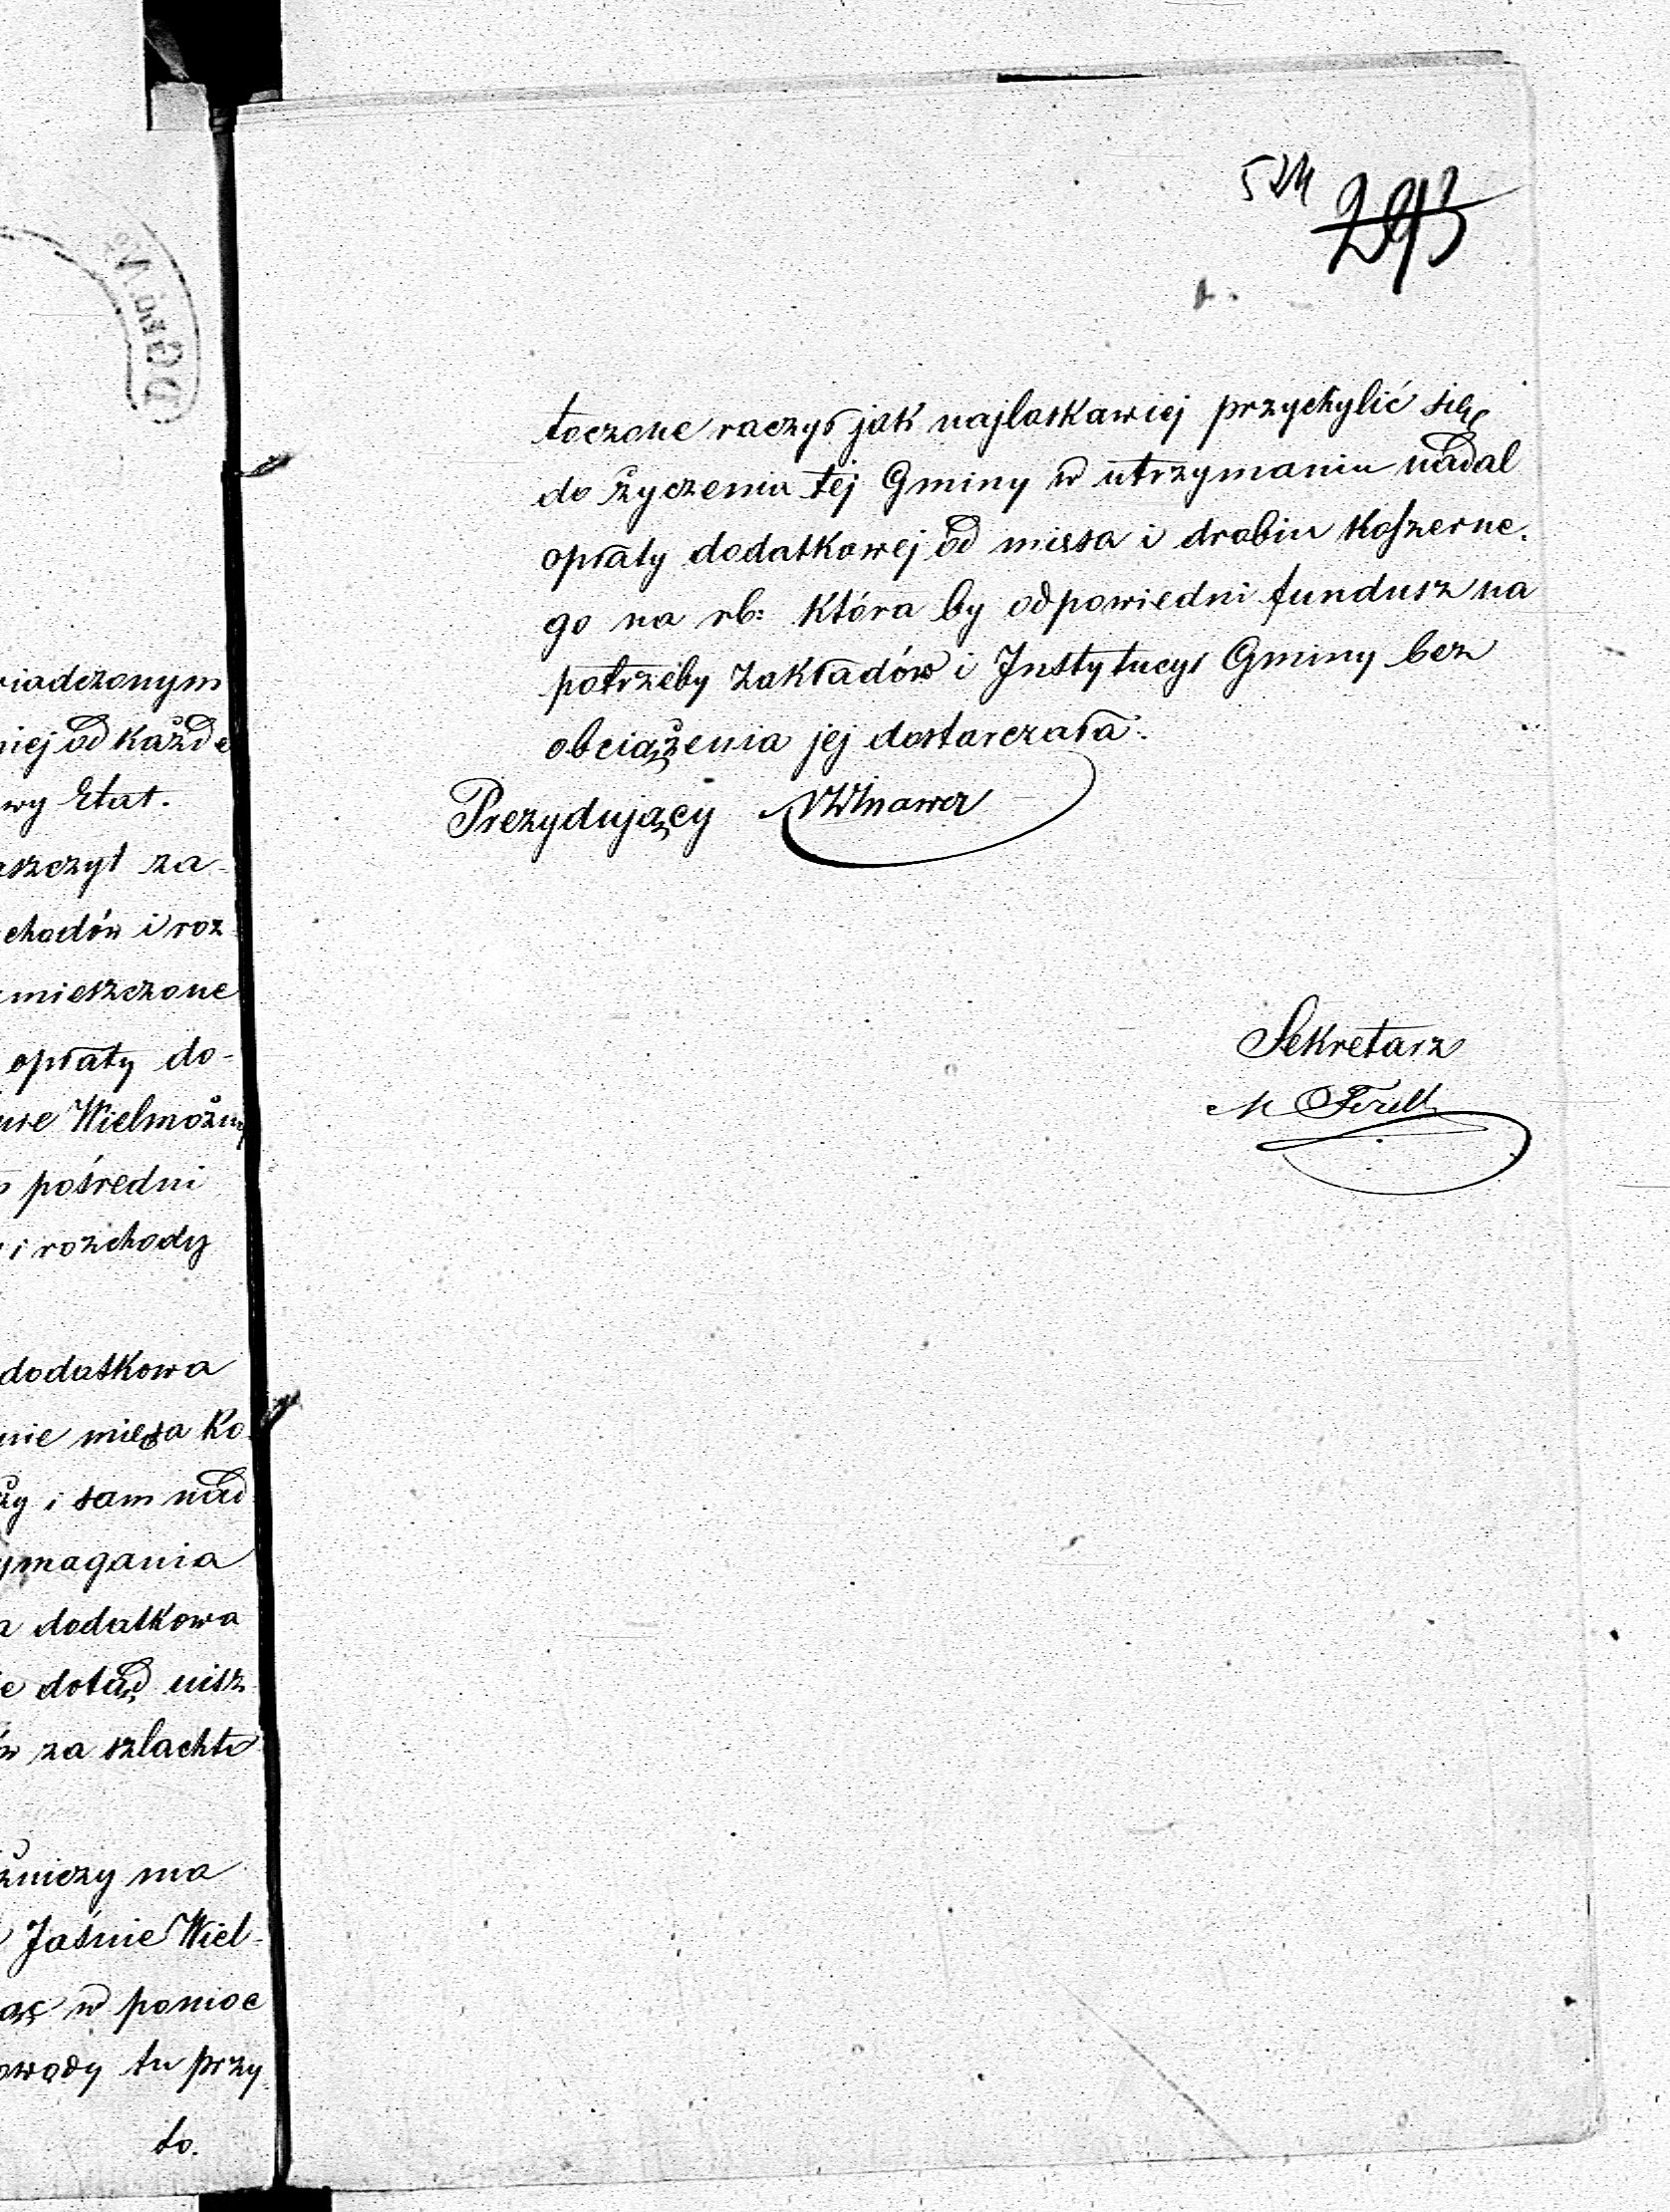 wiadczonym
niej od każde
wy Etat.
aszczył za-
chodów i roz
mieszczone
opłaty do-
Wielmożny
pośredni
i rozchody
dodatkowa
nie mięsa Ko
i sam nad
ymagania
a dodatkowa
e dotąd nisz
za szlachto
żniczy ma
Jaśnie Wiel-
w pomoc
owody tu przy
to.
524
293
toczone raczył jak najłaskawiej przychylić się
do życzenia tej Gminy w utrzymaniu nadal
opłaty dodatkowej od mięsa i drobiu Koszerne.
go na rb: która by odpowiedni fundusz na
potrzeby Zakładów i Instytucyi Gminy bez
obciążenia jej dostarczała.
Prezydujący
Sekretarz